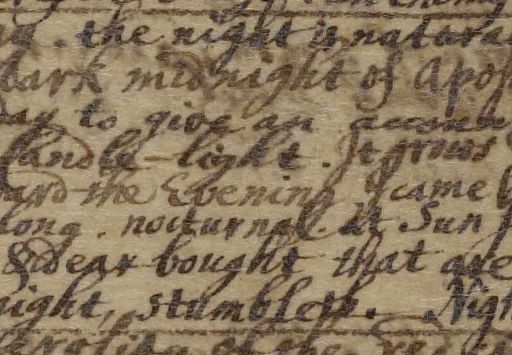 the night is natura
dark midnight of Apos
day to give an accou
Candle-light. It grows
ward the Evening. came
long. nocturnal. At Sun
& dear bought that are
night, stumbleth. Nigh